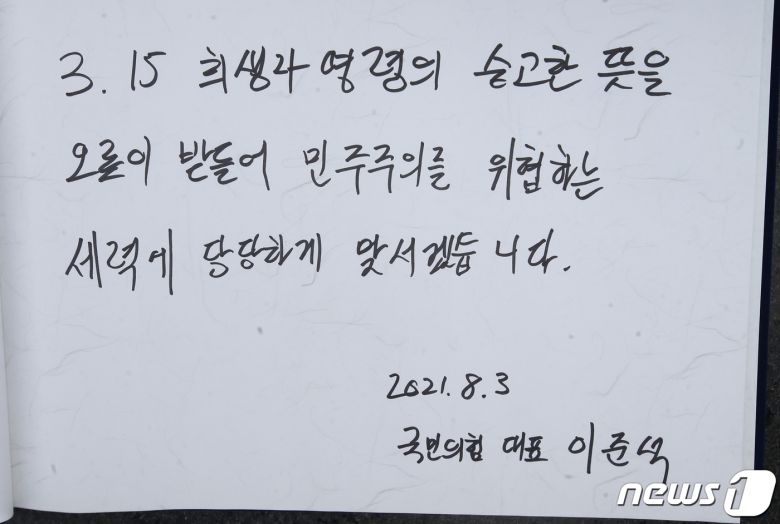 3. 15 희생자 영령의 숭고한 뜻을
오롯이 받들어 민주주의를 위협하는
세력에 당당하게 맞서겠습니다.
2021. 8. 3
국민의힘 대표 이준석
news1